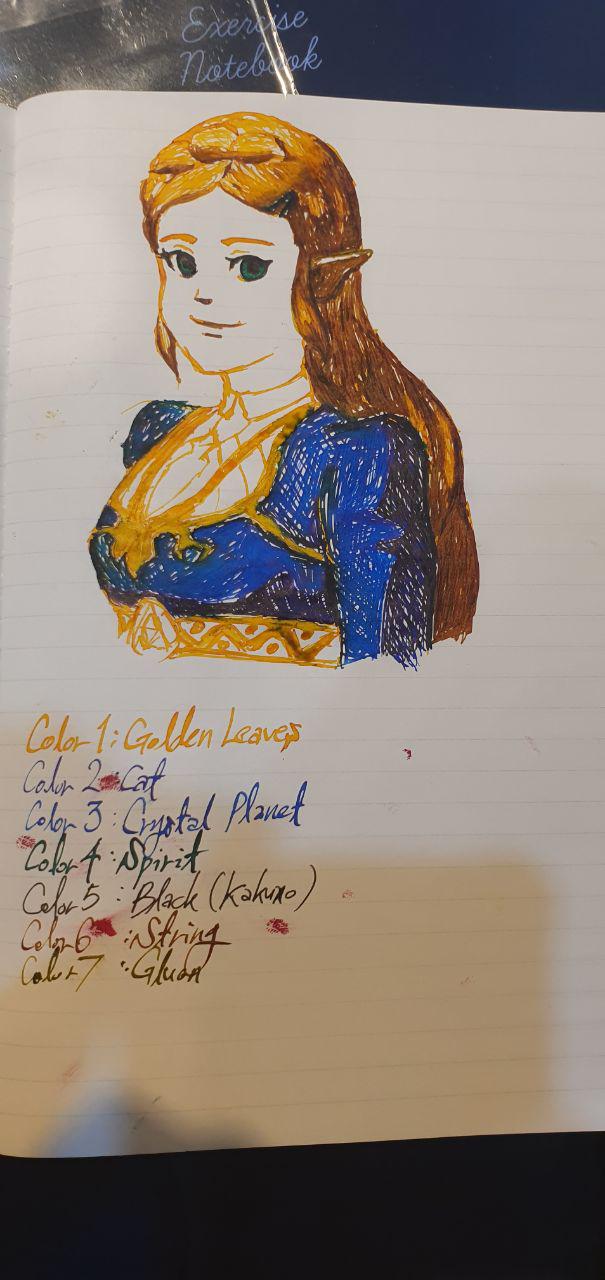 Exercise
Notebook
Color 1: Golden Leaves
Color 2: Cat
Color 3: Crystal Planet
Color 4: Spirit
Color 5: Black (Kakuno)
Color 6: String
Color 7: Gluon